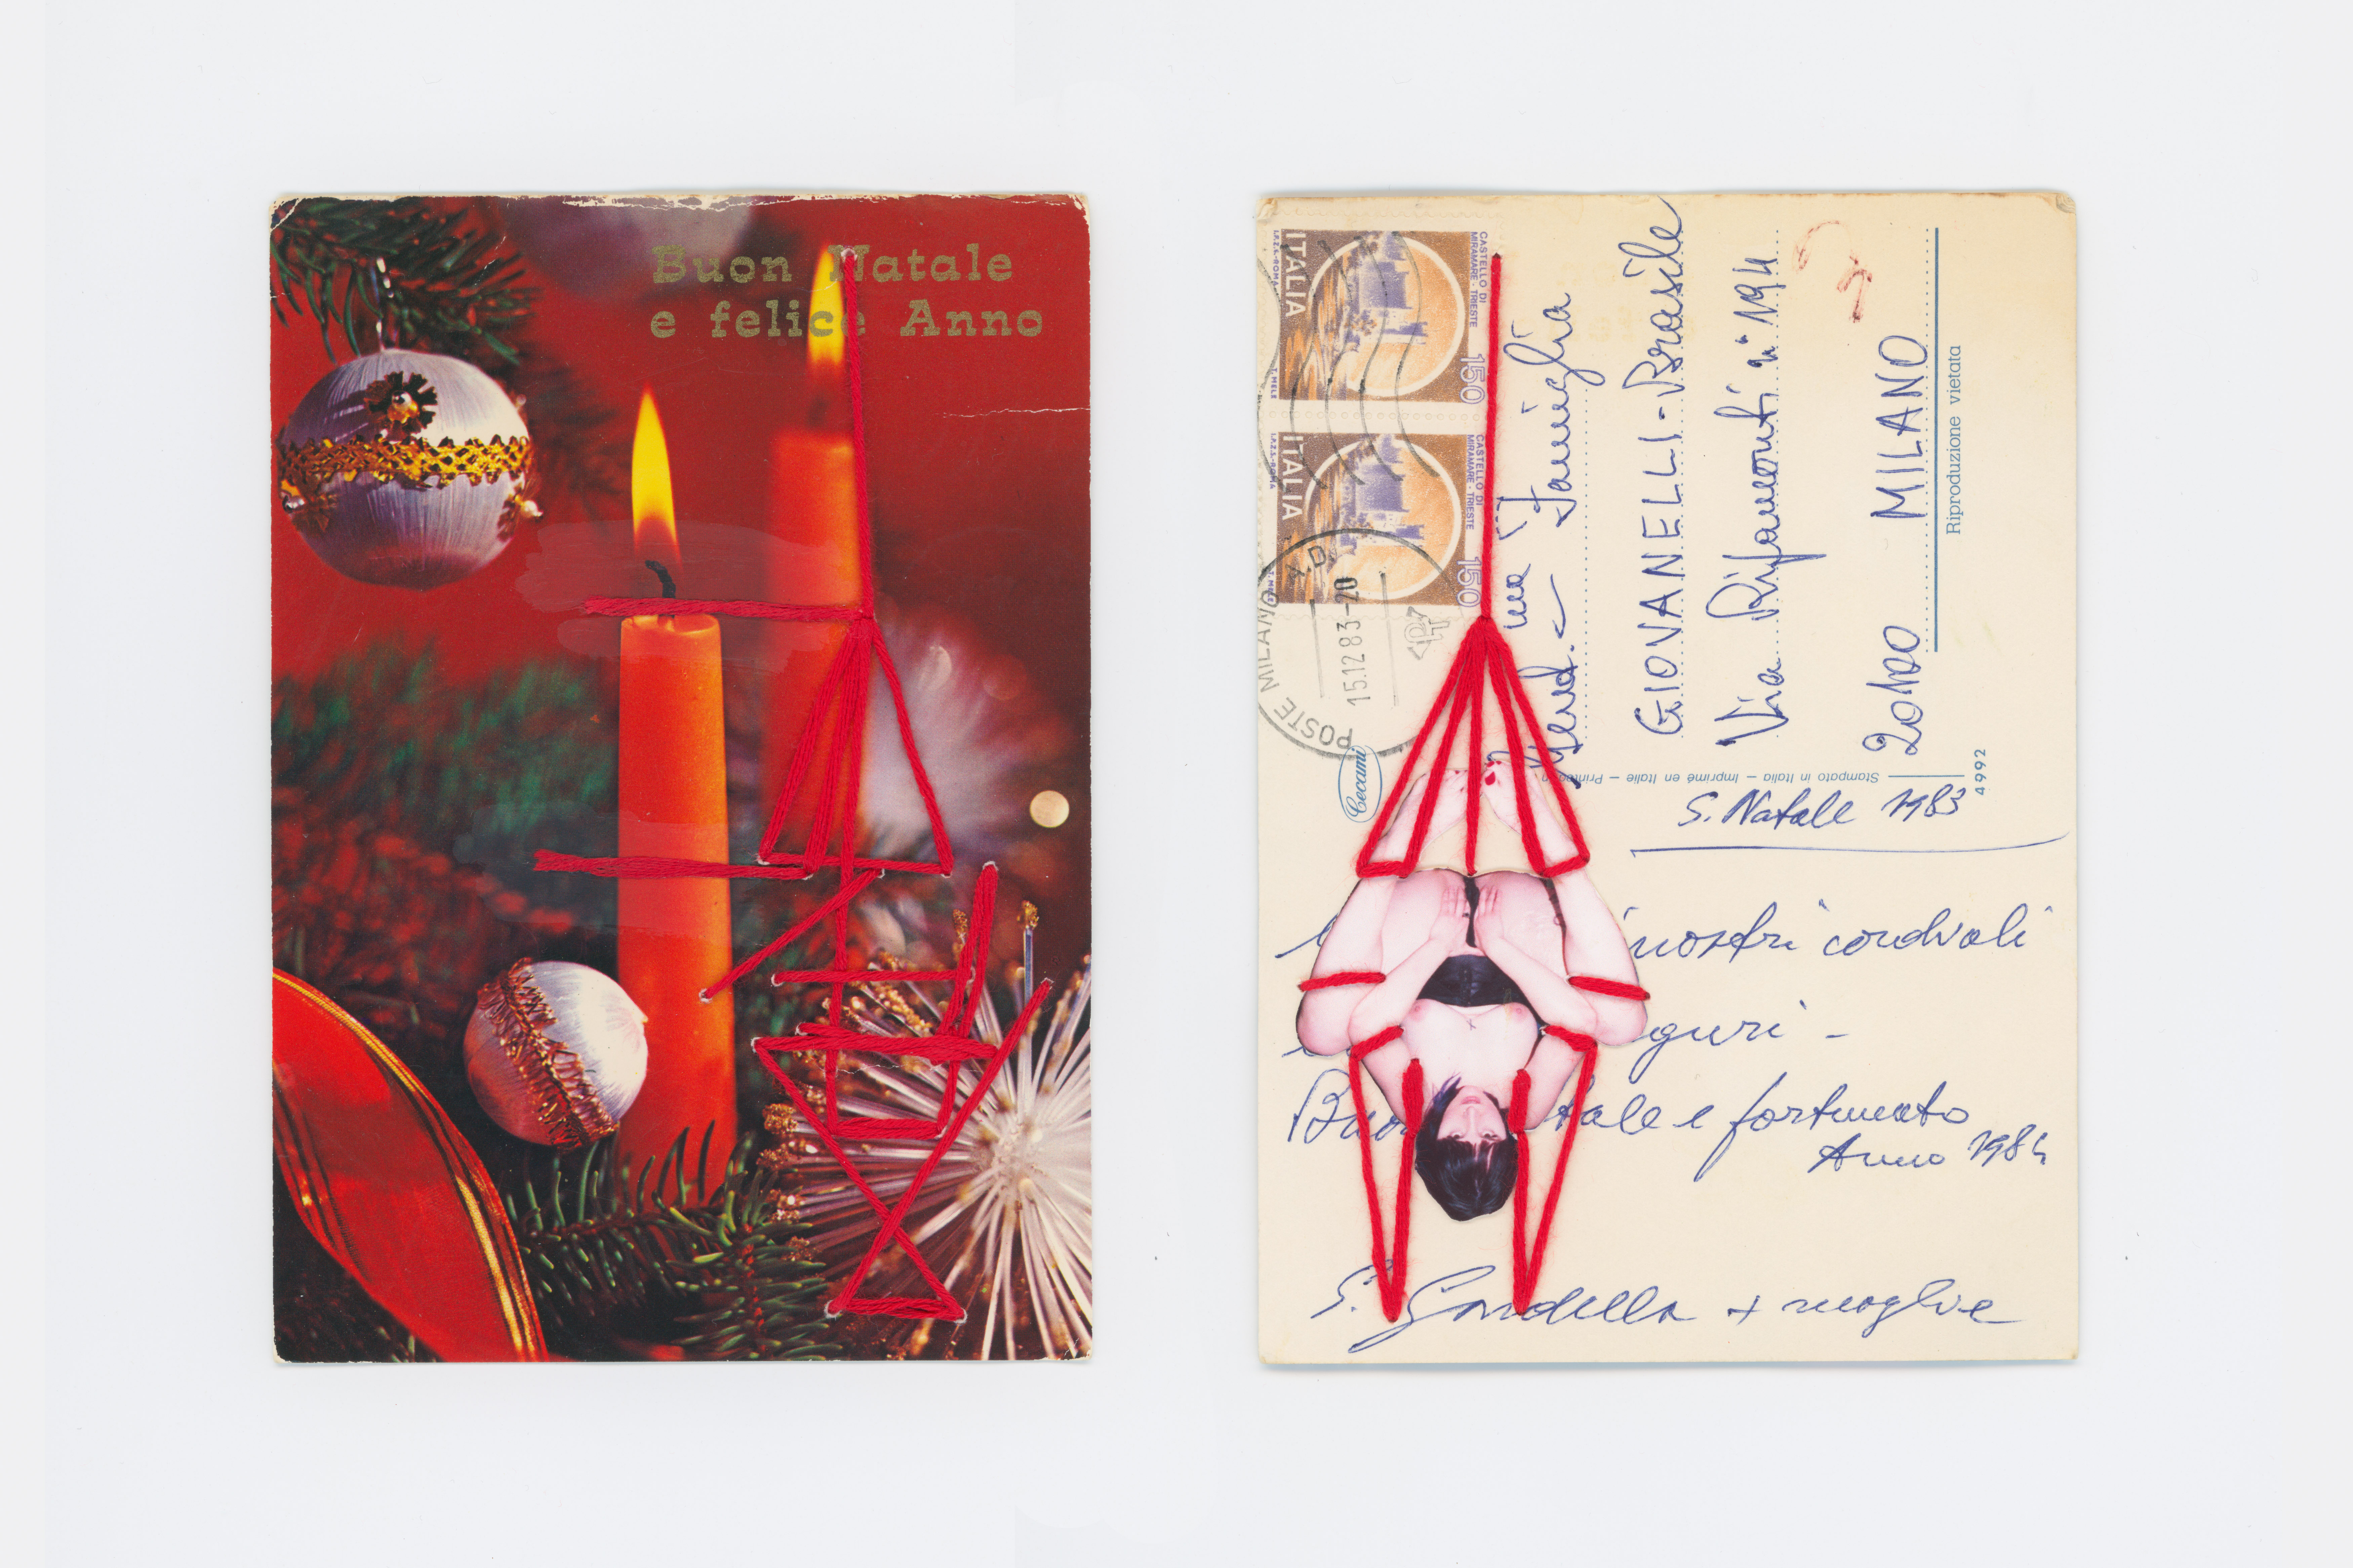 Buon Natale
e felice Anno
ITALIA
CASTELLO DI
MIRAMARE - TRIESTE
150
I.P.Z.S. - ROMA
T. MELE
ITALIA
CASTELLO DI
MIRAMARE - TRIESTE
150
I.P.Z.S. - ROMA
T. MELE
POSTE MILANO A.D.
15.12 83-20
PT
Famiglia
GIOVANELLI - Brasile
Via Ripamonti n° 194
20100 MILANO
Riproduzione vietata
Cecami
Stampato in Italia – Imprimé en Italie – Printed in
4992
S. Natale 1983
nostri cordiali
guri -
Buo tale e fortunato
Anno 1984
S. Gardella + moglie